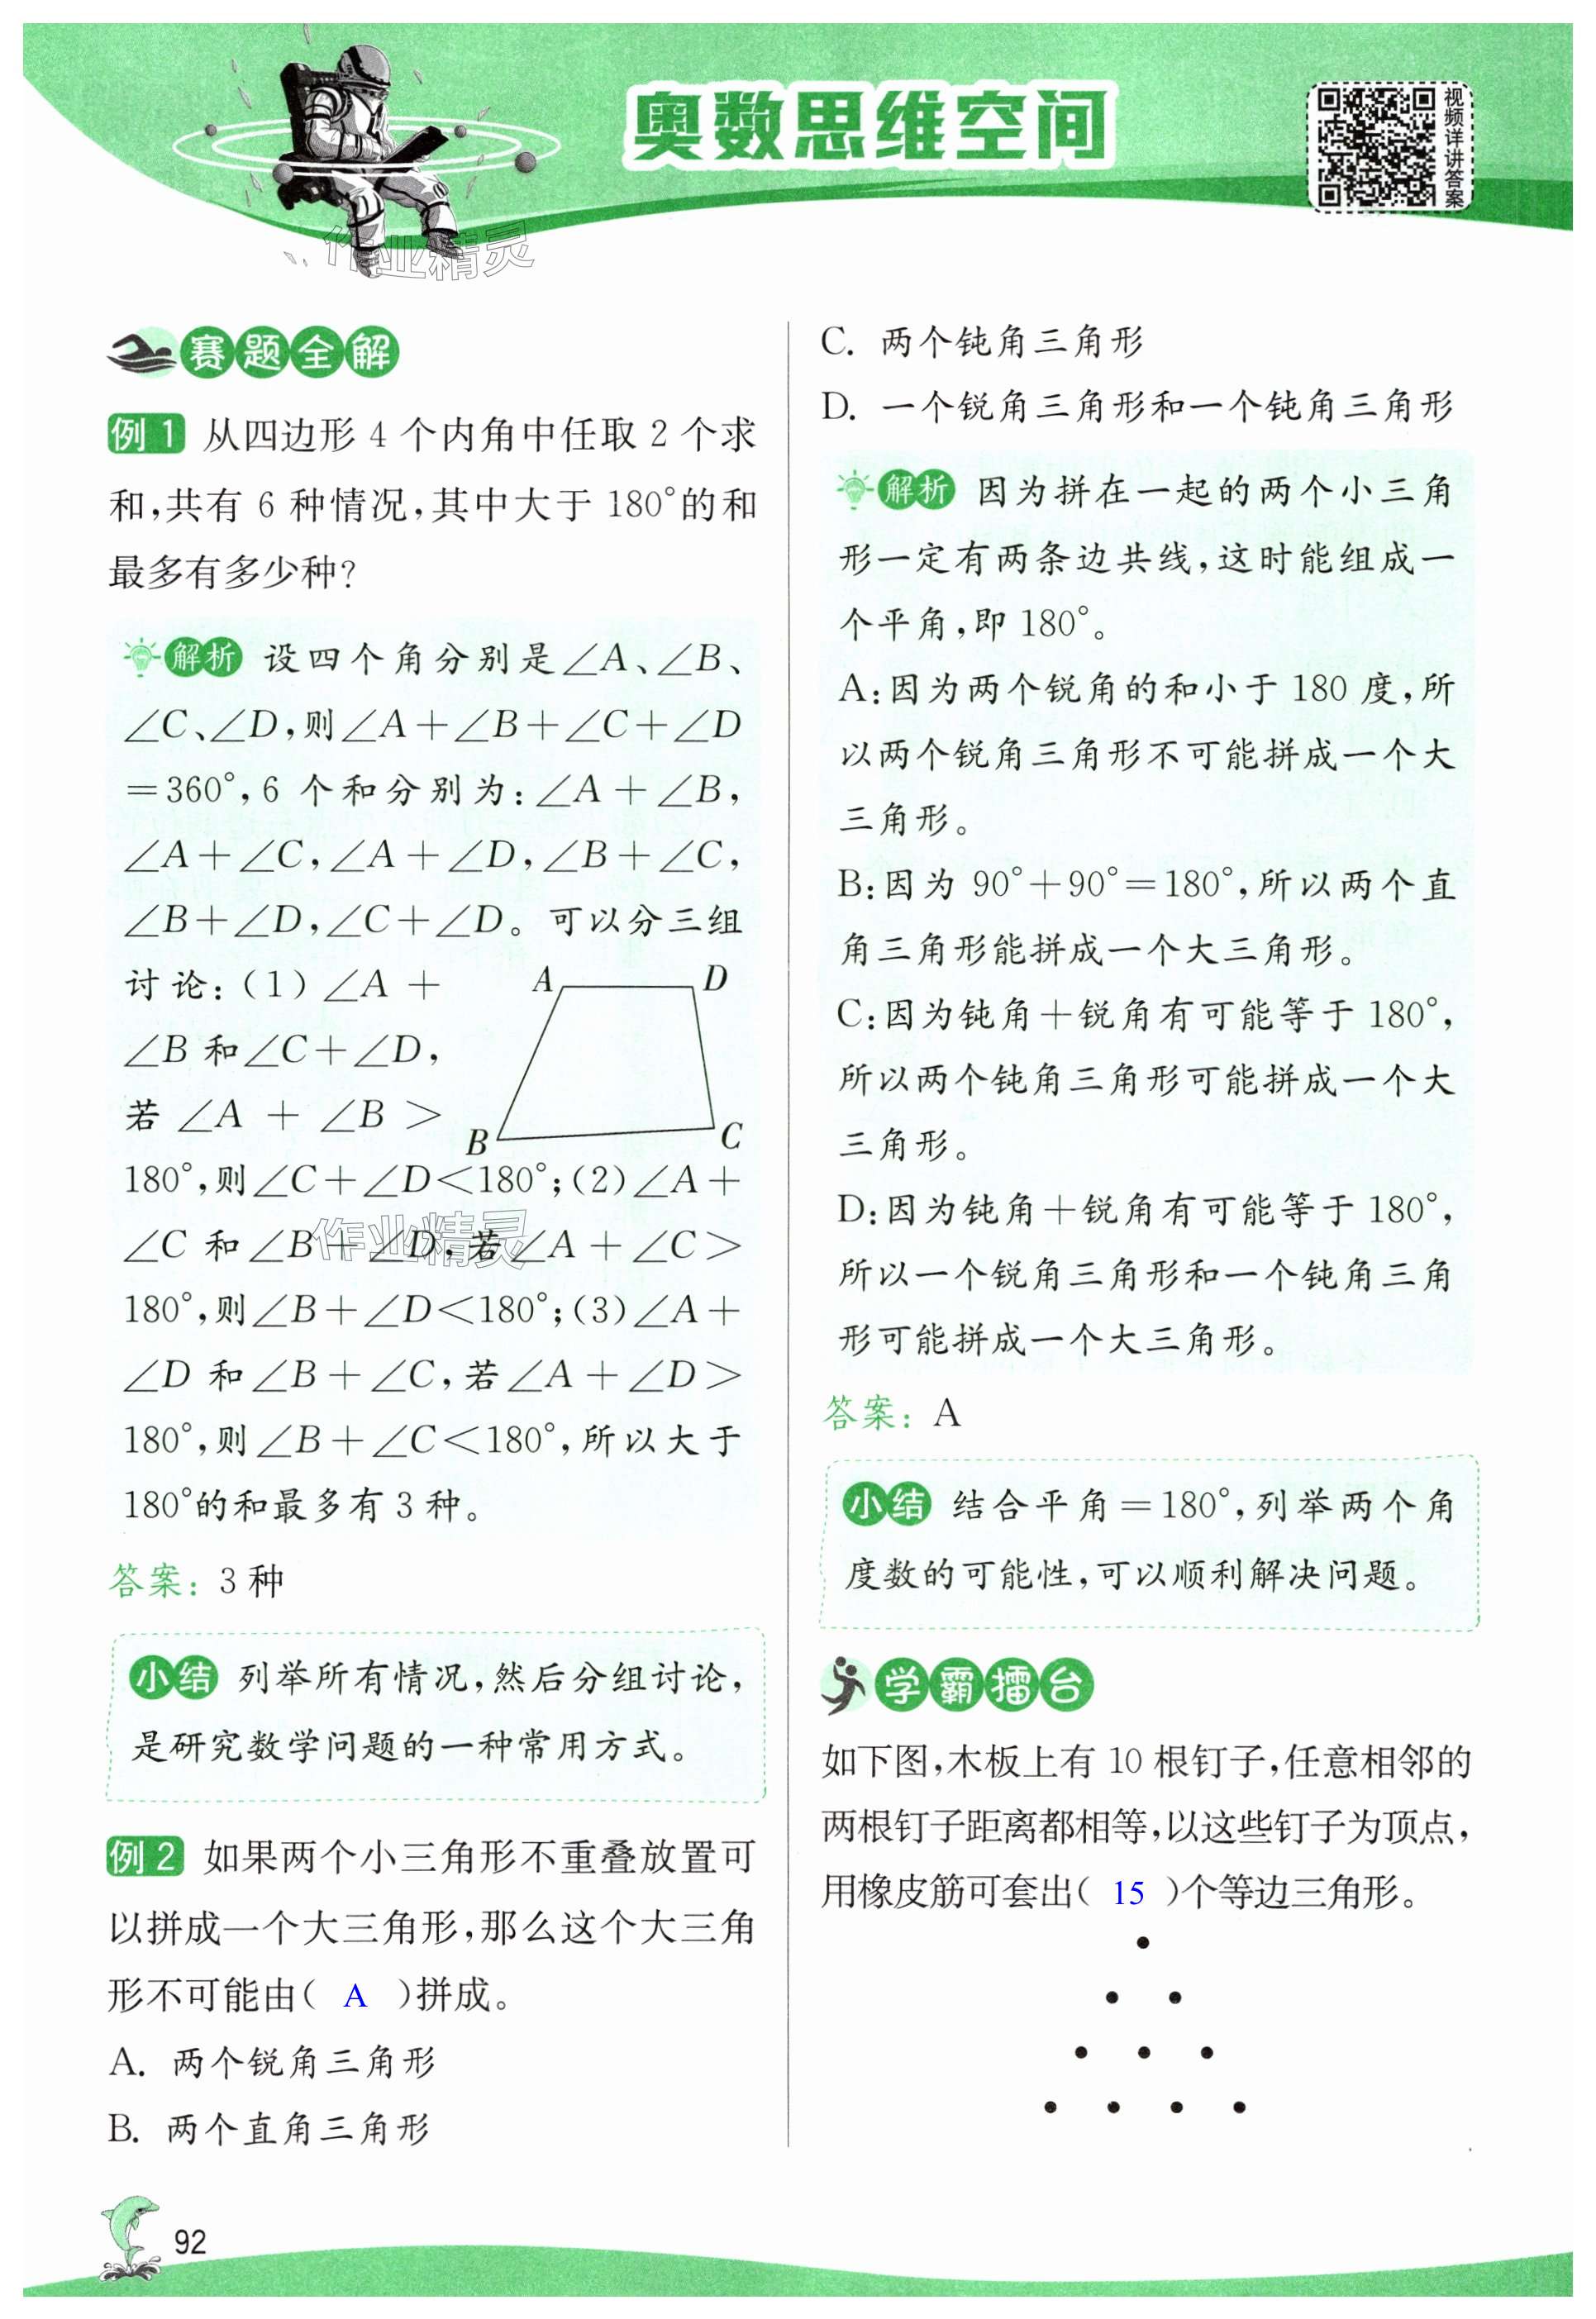 奥数思维空间
视频详讲答案
作业精灵
赛题全解
例1 从四边形 4 个内角中任取 2 个求
和,共有 6 种情况,其中大于 180°的和
最多有多少种?
解析 设四个角分别是∠A、∠B、
∠C、∠D,则∠A+∠B+∠C+∠D
=360°,6 个和分别为:∠A+∠B,
∠A+∠C,∠A+∠D,∠B+∠C,
∠B+∠D,∠C+∠D。可以分三组
讨论:(1)∠A+
∠B 和∠C+∠D,
若 ∠A + ∠B >
A
D
B
C
180°,则∠C+∠D<180°;(2)∠A+
∠C 和∠B+∠D,若∠A+∠C>
作业精灵
180°,则∠B+∠D<180°;(3)∠A+
∠D 和∠B+∠C,若∠A+∠D>
180°,则∠B+∠C<180°,所以大于
180°的和最多有 3 种。
答案:3 种
小结 列举所有情况,然后分组讨论,
是研究数学问题的一种常用方式。
例2 如果两个小三角形不重叠放置可
以拼成一个大三角形,那么这个大三角
形不可能由( A )拼成。
A. 两个锐角三角形
B. 两个直角三角形
C. 两个钝角三角形
D. 一个锐角三角形和一个钝角三角形
解析 因为拼在一起的两个小三角
形一定有两条边共线,这时能组成一
个平角,即 180°。
A:因为两个锐角的和小于 180 度,所
以两个锐角三角形不可能拼成一个大
三角形。
B:因为 90°+90°=180°,所以两个直
角三角形能拼成一个大三角形。
C:因为钝角+锐角有可能等于 180°,
所以两个钝角三角形可能拼成一个大
三角形。
D:因为钝角+锐角有可能等于 180°,
所以一个锐角三角形和一个钝角三角
形可能拼成一个大三角形。
答案:A
小结 结合平角=180°,列举两个角
度数的可能性,可以顺利解决问题。
学霸擂台
如下图,木板上有 10 根钉子,任意相邻的
两根钉子距离都相等,以这些钉子为顶点,
用橡皮筋可套出( 15 )个等边三角形。
92